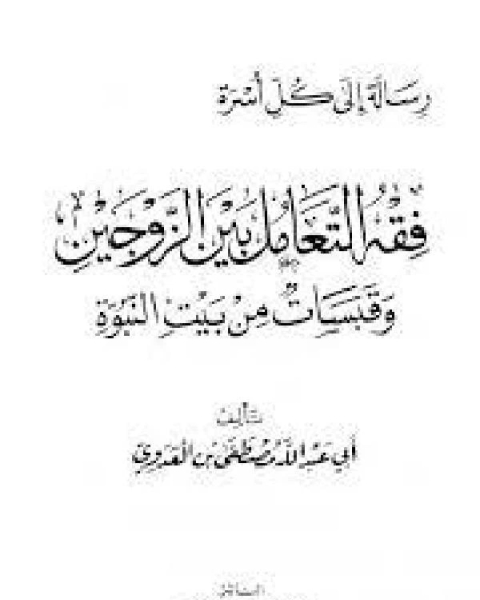 رِسَالَة إِلَى كُلِّ أُسْرَة
فِقْهُ التَّعَامُلِ بَيْنَ الزَّوْجَيْنِ
وَقَبَسَاتٌ مِنْ بَيْتِ النُّبُوَّةِ
تأليف
أبي عبد الله مصطفى بن العدوي
الناشر